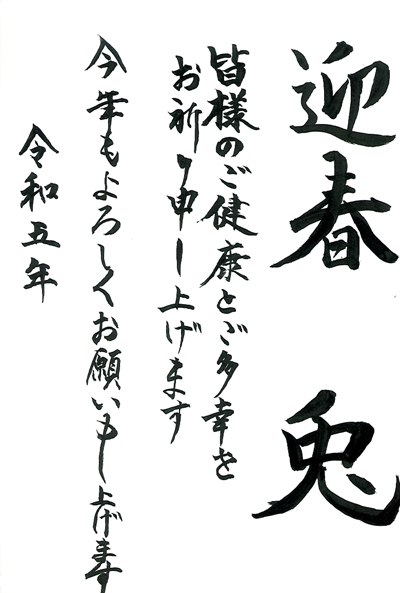 迎春 兎
皆様のご健康とご多幸を
お祈り申し上げます
今年もよろしくお願い申し上げます
令和五年